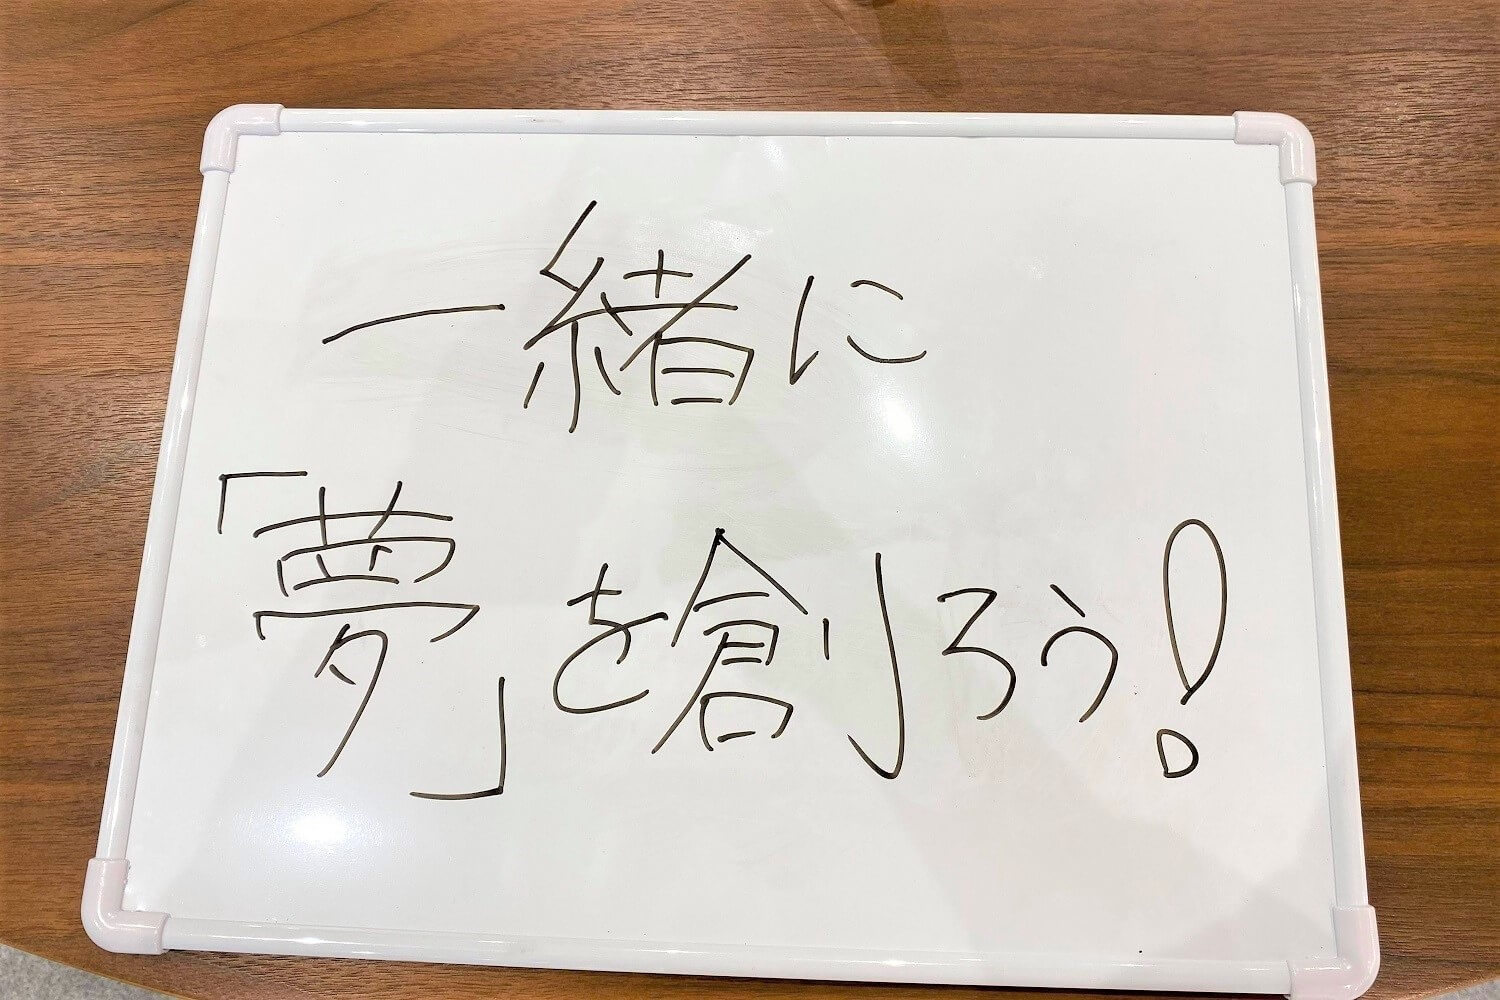 一緒に
「夢」を創ろう!